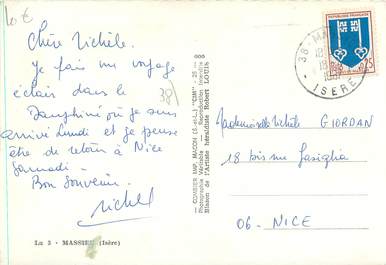 10€
Chère Michèle.
Je fais un voyage
éclair dans le
Dauphiné où je suis
arrivé Lundi et je pense
être de retour à Nice
Samedi -
Bon Souvenir.
Michel
38
La 3 - MASSIEU (Isère)
COMBIER IMP. MACON (S.-&-L.) "CIM"
Photographie Véritable - Reproduction Interdite
Blason de l'Artiste héraldiste Robert LOUIS
REPUBLIQUE FRANÇAISE
0,25
38 - MA
18
ISERE
Mademoiselle Michèle GIORDAN
18 bis rue
06 - NICE